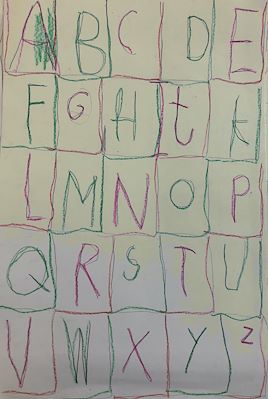 A B C D E
F G H t k
L M N O P
Q R S T U
V W X Y Z